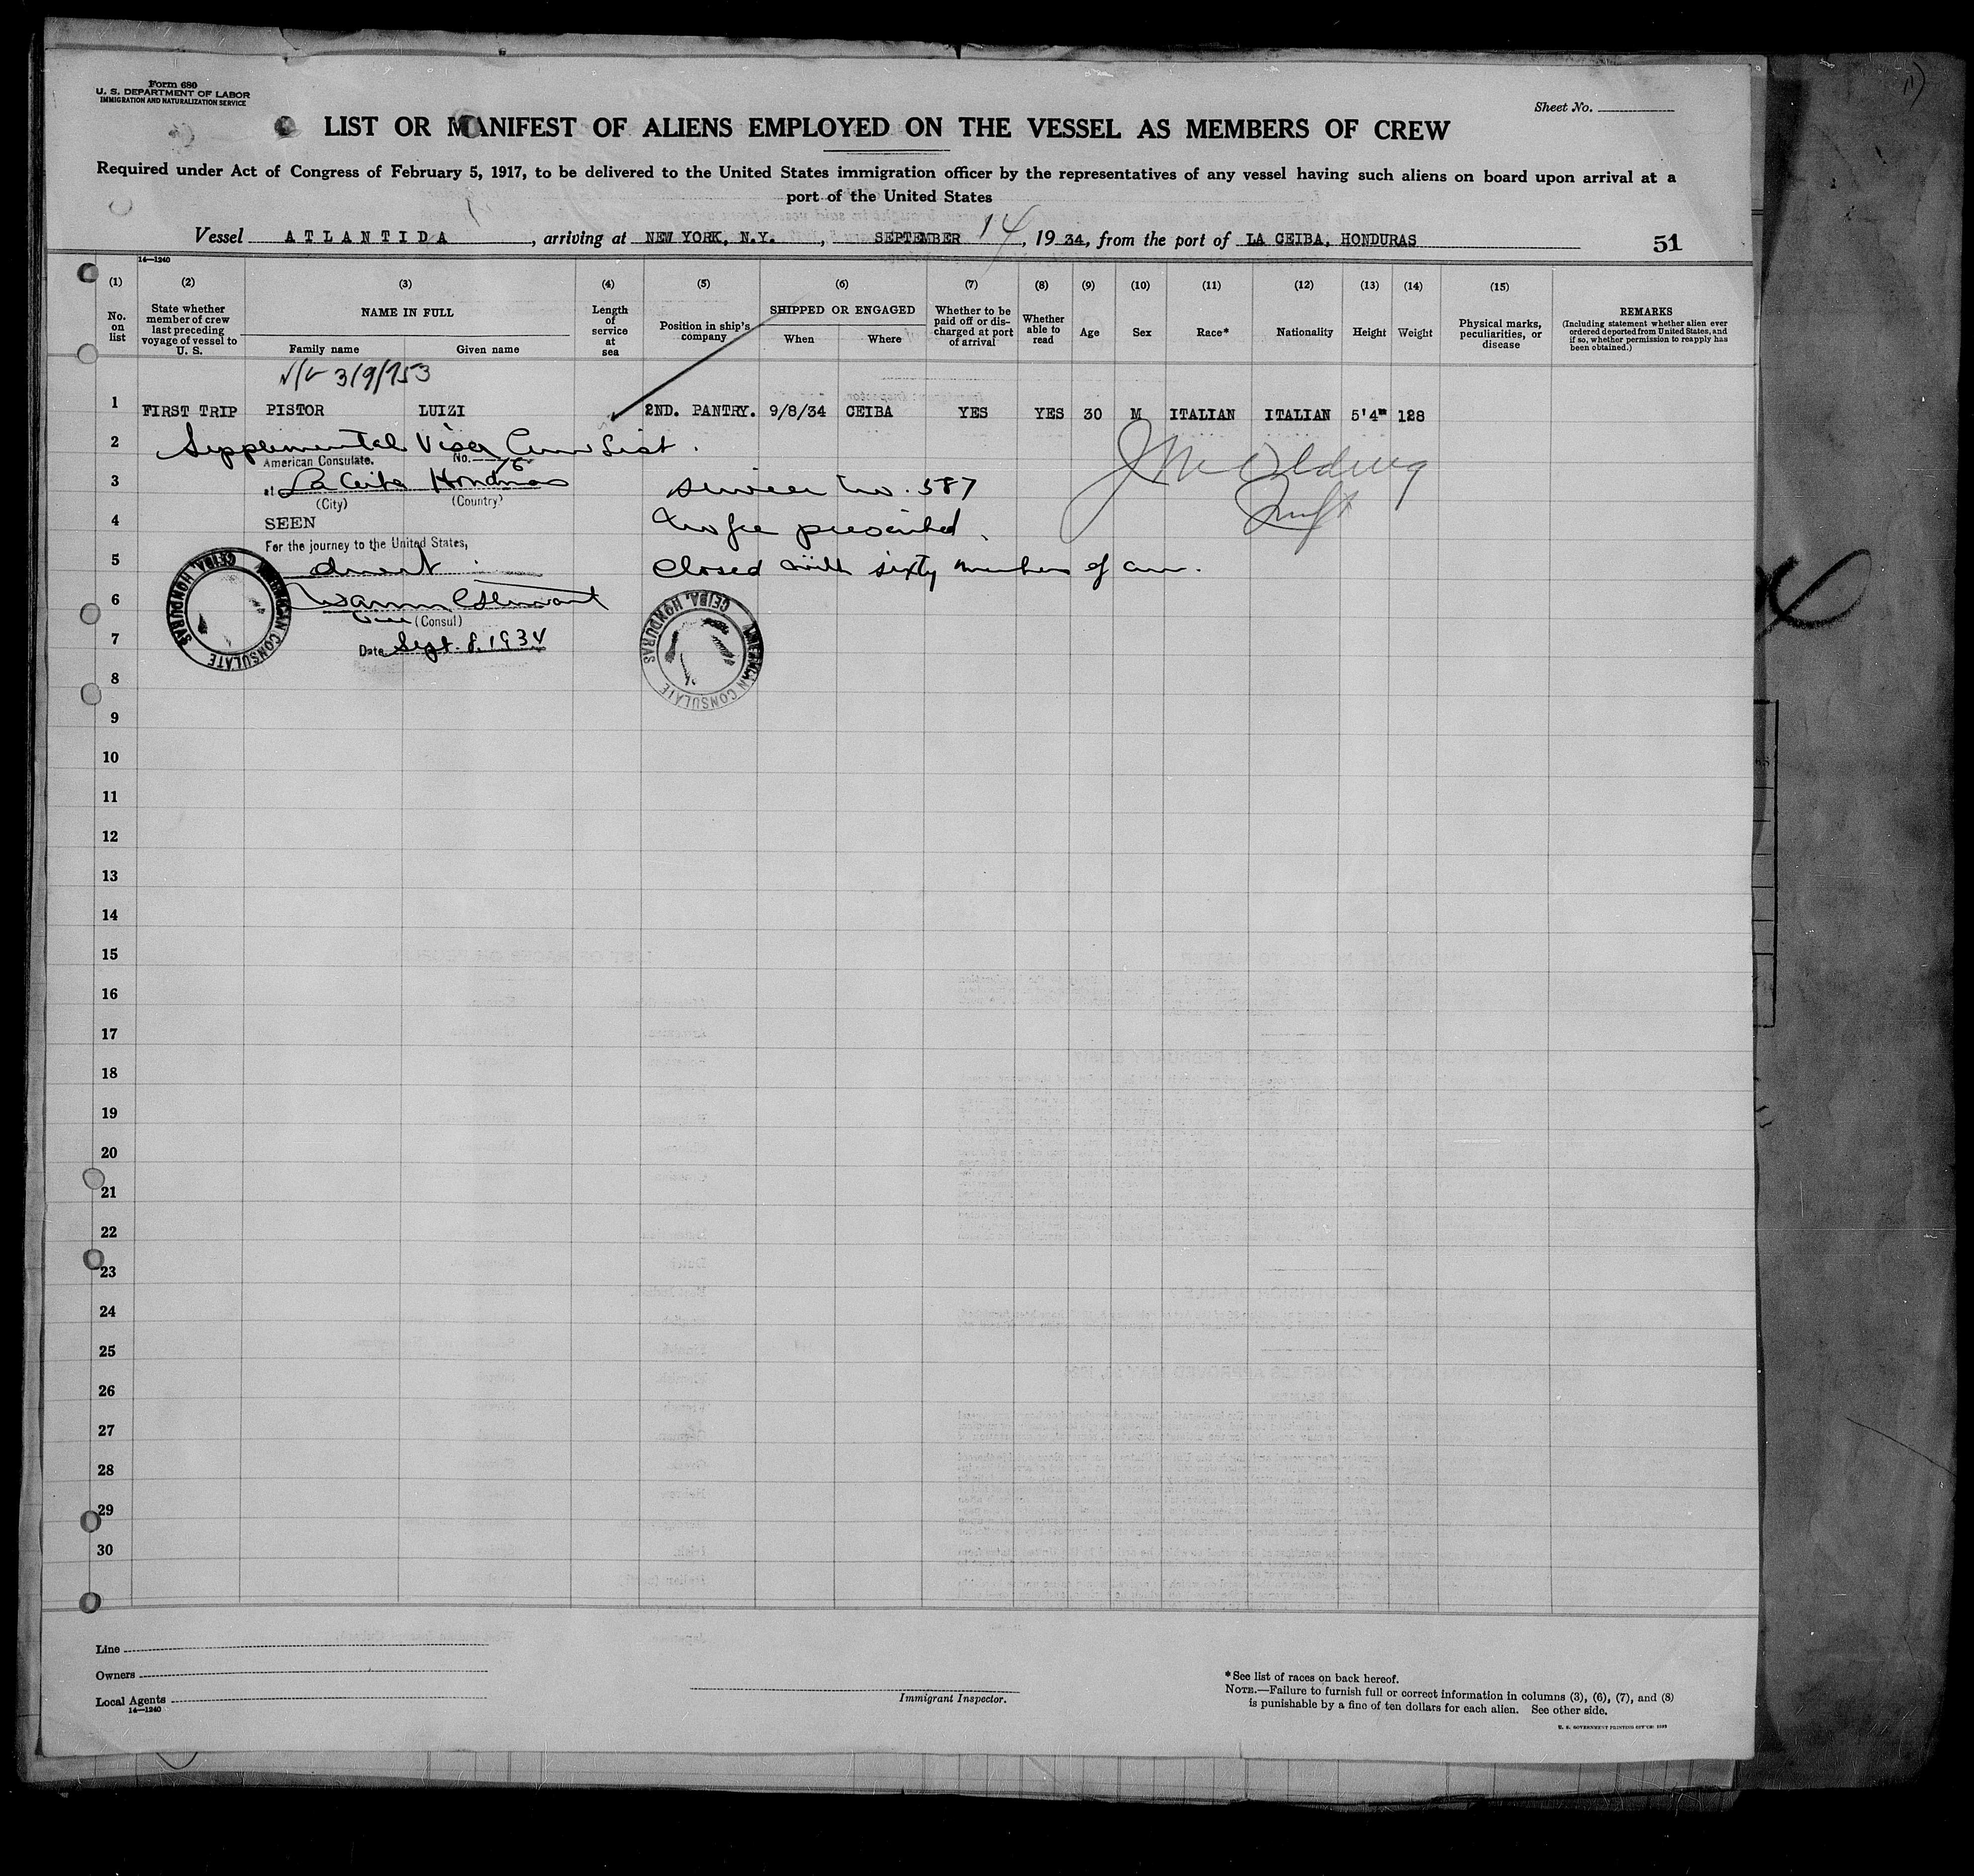 Form 680
U. S. DEPARTMENT OF LABOR
IMMIGRATION AND NATURALIZATION SERVICE
Sheet No.
LIST OR MANIFEST OF ALIENS EMPLOYED ON THE VESSEL AS MEMBERS OF CREW
Required under Act of Congress of February 5, 1917, to be delivered to the United States immigration officer by the representatives of any vessel having such aliens on board upon arrival at a
port of the United States
Vessel ATLANTIDA, arriving at NEW YORK, N.Y., SEPTEMBER 14, 1934, from the port of LA CEIBA, HONDURAS
51
14—1240
(1) (2) (3) (4) (5) (6) (7) (8) (9) (10) (11) (12) (13) (14) (15)
No. on list
State whether member of crew last preceding voyage of vessel to U. S.
NAME IN FULL
Family name
Given name
Length of service at sea
Position in ship's company
SHIPPED OR ENGAGED
When
Where
Whether to be paid off or discharged at port of arrival
Whether able to read
Age
Sex
Race*
Nationality
Height
Weight
Physical marks, peculiarities, or disease
REMARKS
(Including statement whether alien ever ordered deported from United States, and if so, whether permission to reapply has been obtained.)
3/9/153
1 FIRST TRIP PISTOR LUIZI 2ND. PANTRY. 9/8/34 CEIBA YES YES 30 M ITALIAN ITALIAN 5'4" 128
2 Supplemental Visa Crew List.
American Consulate. No. 15
3 at La Ceiba Honduras
(City) (Country)
Service No. 587
4 SEEN
No fee prescribed.
For the journey to the United States,
5 direct
Closed with sixty members of crew.
6 Warren C Stewart
Vice (Consul)
7 Date Sept. 8, 1934
AMERICAN CONSULATE
CEIBA, HONDURAS
AMERICAN CONSULATE
CEIBA, HONDURAS
8
9
10
11
12
13
14
15
16
17
18
19
20
21
22
23
24
25
26
27
28
29
30
Line
Owners
Local Agents
14—1240
Immigrant Inspector.
*See list of races on back hereof.
NOTE.—Failure to furnish full or correct information in columns (3), (6), (7), and (8)
is punishable by a fine of ten dollars for each alien. See other side.
U. S. GOVERNMENT PRINTING OFFICE: